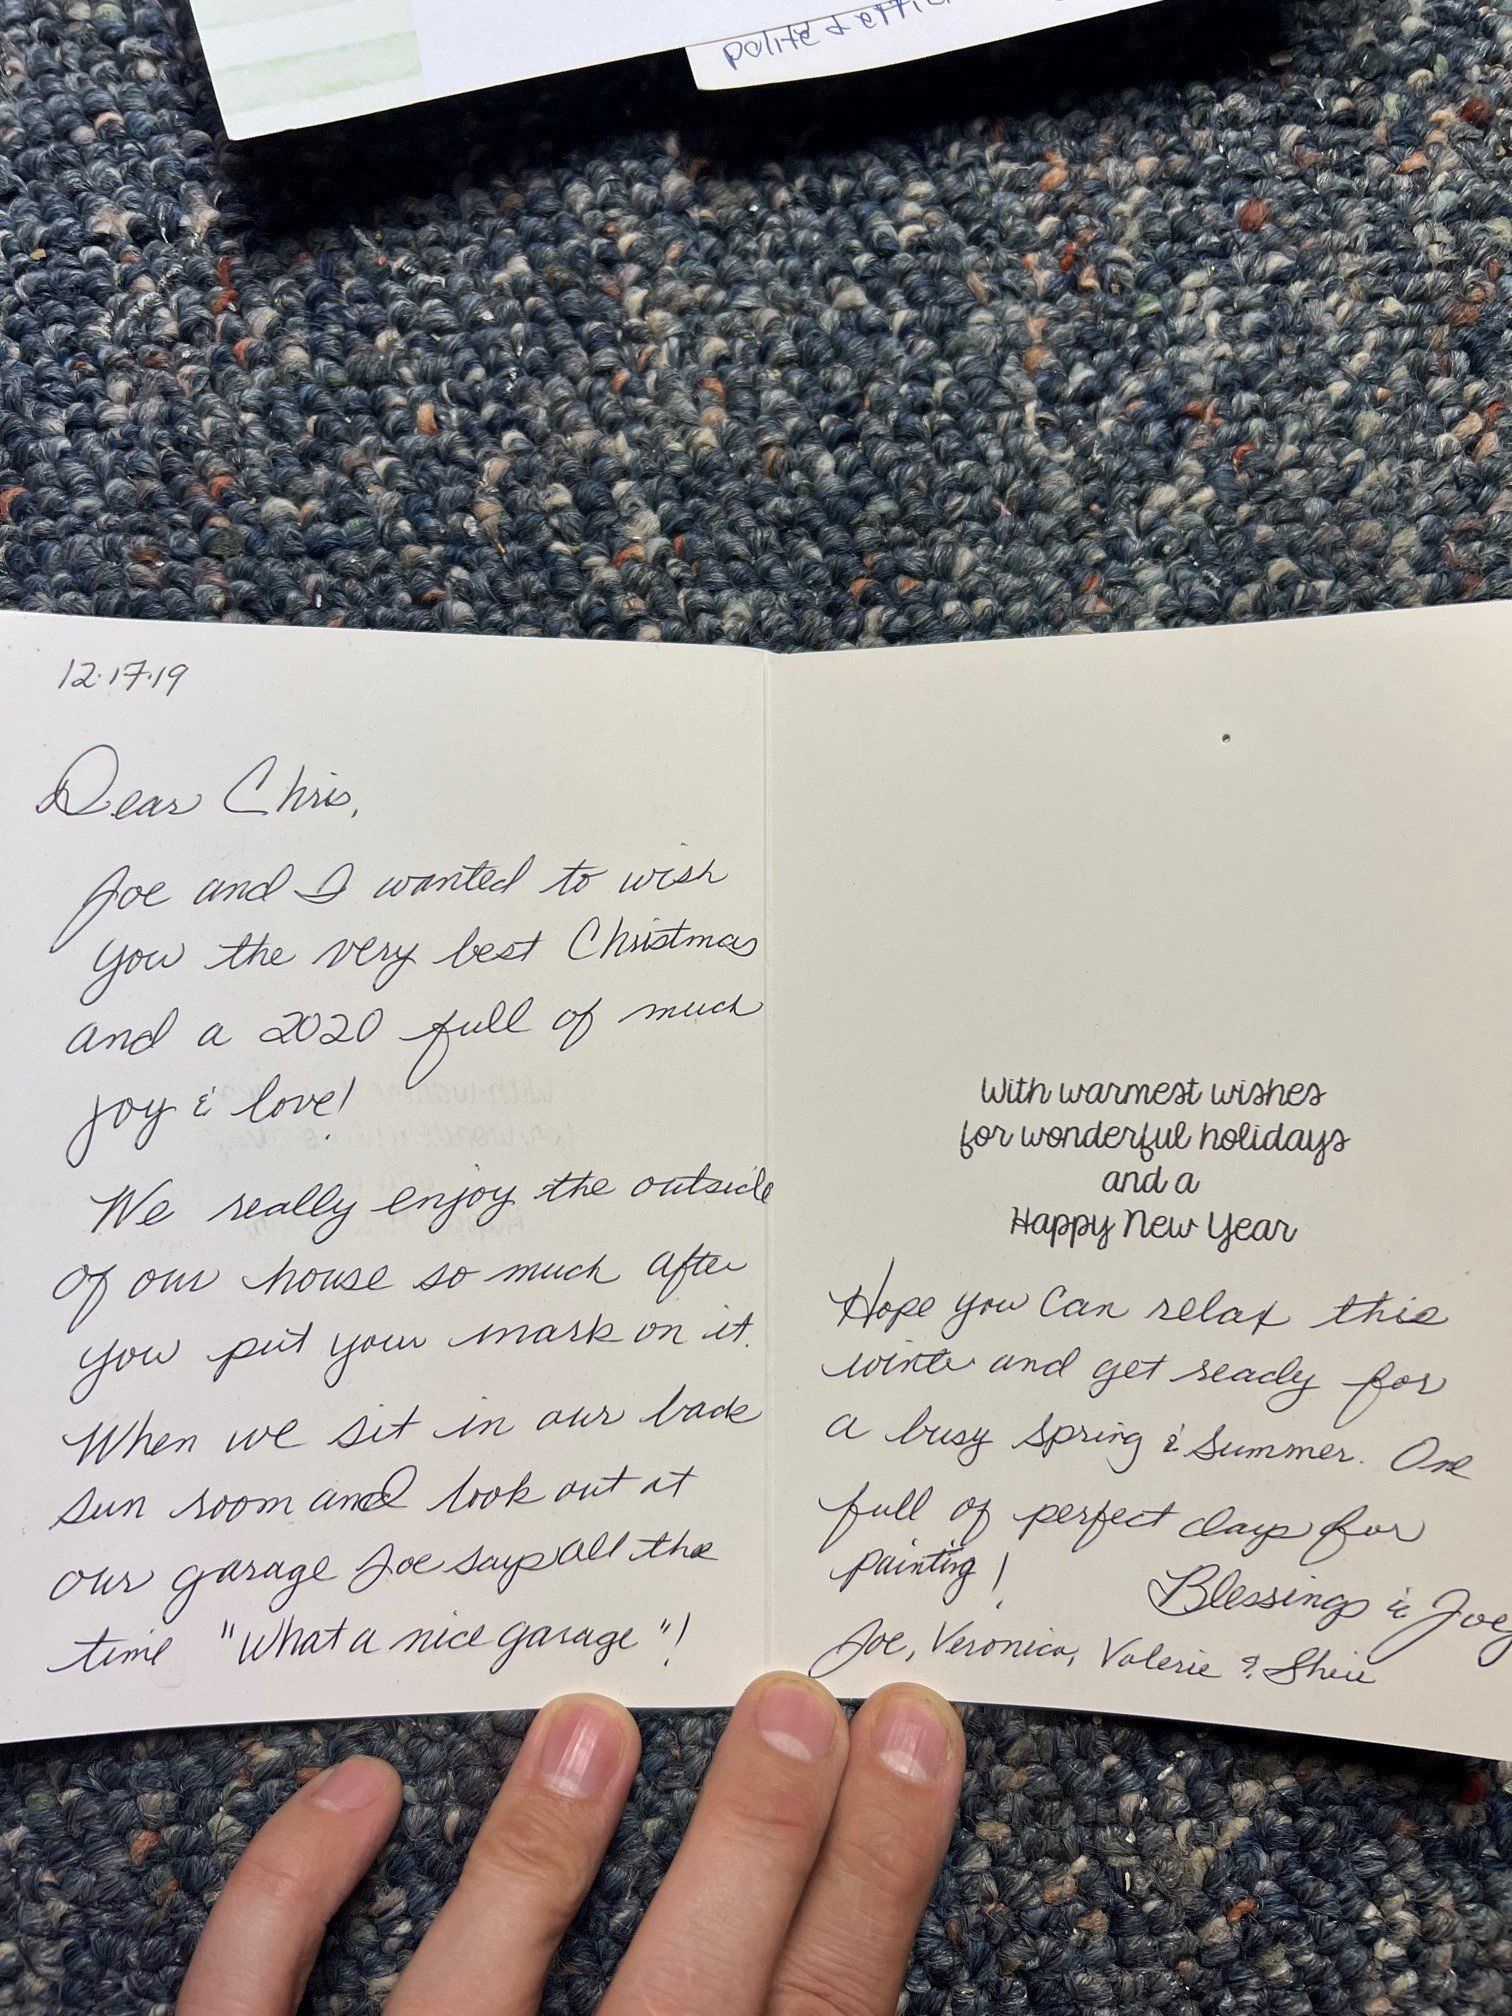 polite & effi
12.17.19
Dear Chris,
Joe and I wanted to wish
you the very best Christmas
and a 2020 full of much
joy & love!
We really enjoy the outside
of our house so much after
you put your mark on it.
When we sit in our back
sun room and look out at
our garage Joe says all the
time "What a nice garage"!
With warmest wishes
for wonderful holidays
and a
Happy New Year
Hope you can relax this
winter and get ready for
a busy spring & summer. One
full of perfect days for
painting!
Blessings & Joy
Joe, Veronica, Valerie &